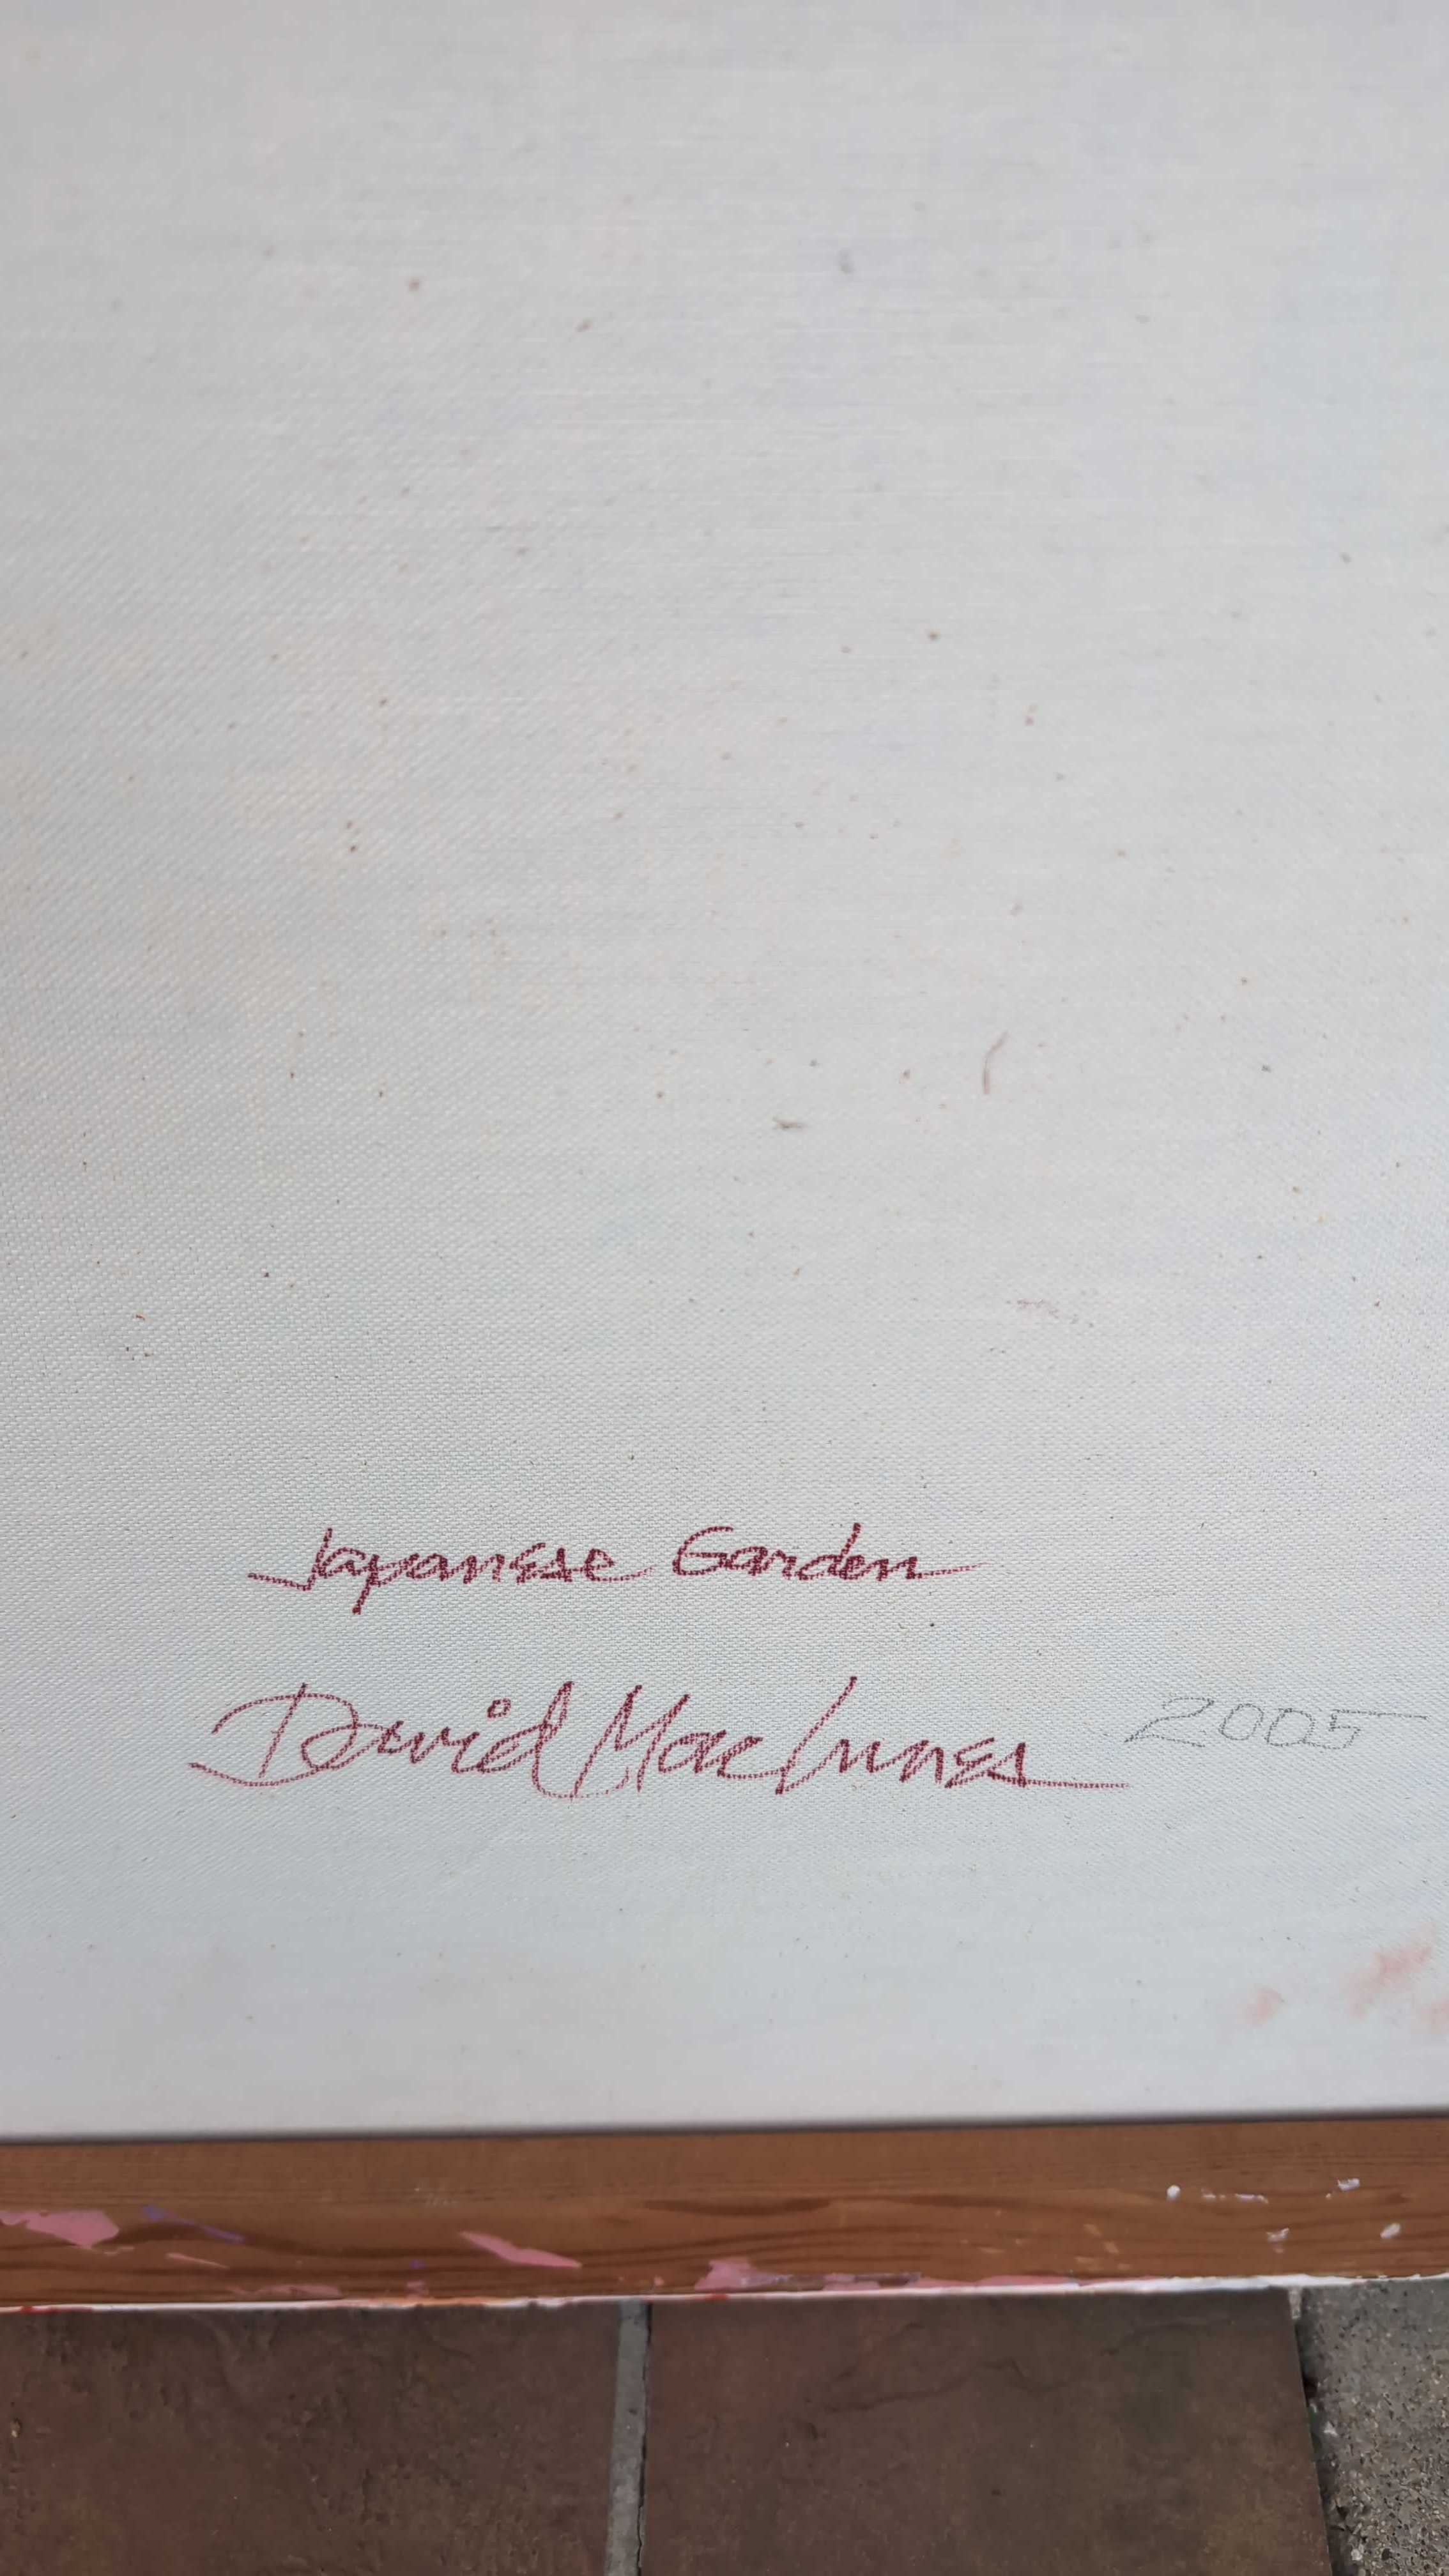 Japanese Garden
David MacInnes 2005